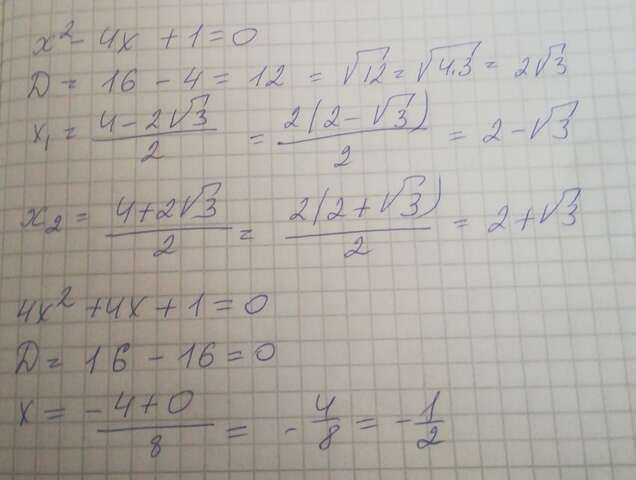 x² - 4x + 1 = 0
D = 16 - 4 = 12 = √12 = √4.3 = 2√3
x₁ = (4 - 2√3)/2 = 2(2 - √3)/2 = 2 - √3
x₂ = (4 + 2√3)/2 = 2(2 + √3)/2 = 2 + √3
4x² + 4x + 1 = 0
D = 16 - 16 = 0
x = (-4 + 0)/8 = -4/8 = -1/2